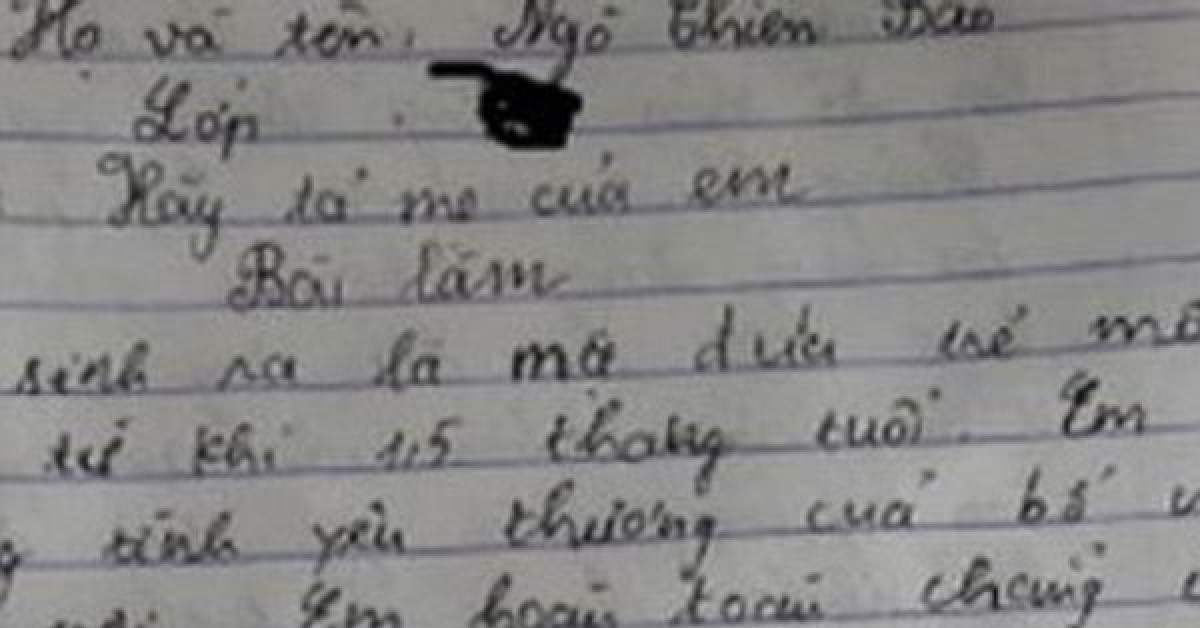 Họ và tên: Ngô Thiên Bảo
Lớp
Hãy tả mẹ của em
Bài làm
sinh ra là một đứa trẻ mồ
từ khi 1,5 tháng tuổi. Em
tình yêu thương của bố
Em hoàn toàn chẳng